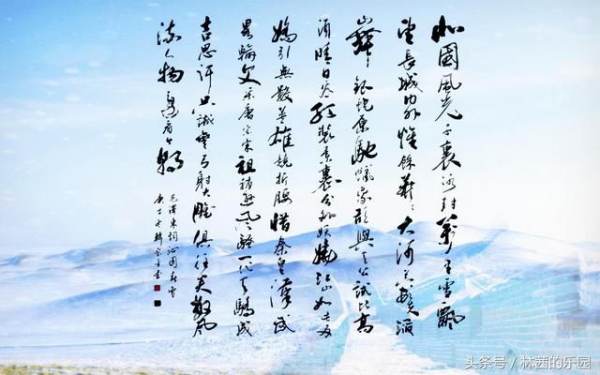 北國風光千裏冰封萬里雪飄
望長城内外惟餘莽々大河上下頓
山舞銀蛇原馳蠟象欲與天公試比高
須晴日看紅裝素裹分外妖嬈江山如此多
嬌引無數英雄競折腰惜秦皇漢武
略輸文采唐宗宋祖稍遜風騷一代天驕成
吉思汗只識彎弓射大雕俱往矣數風
流人物還看今朝
毛澤東詞沁園春雪
头条号 / 林茜的乐园